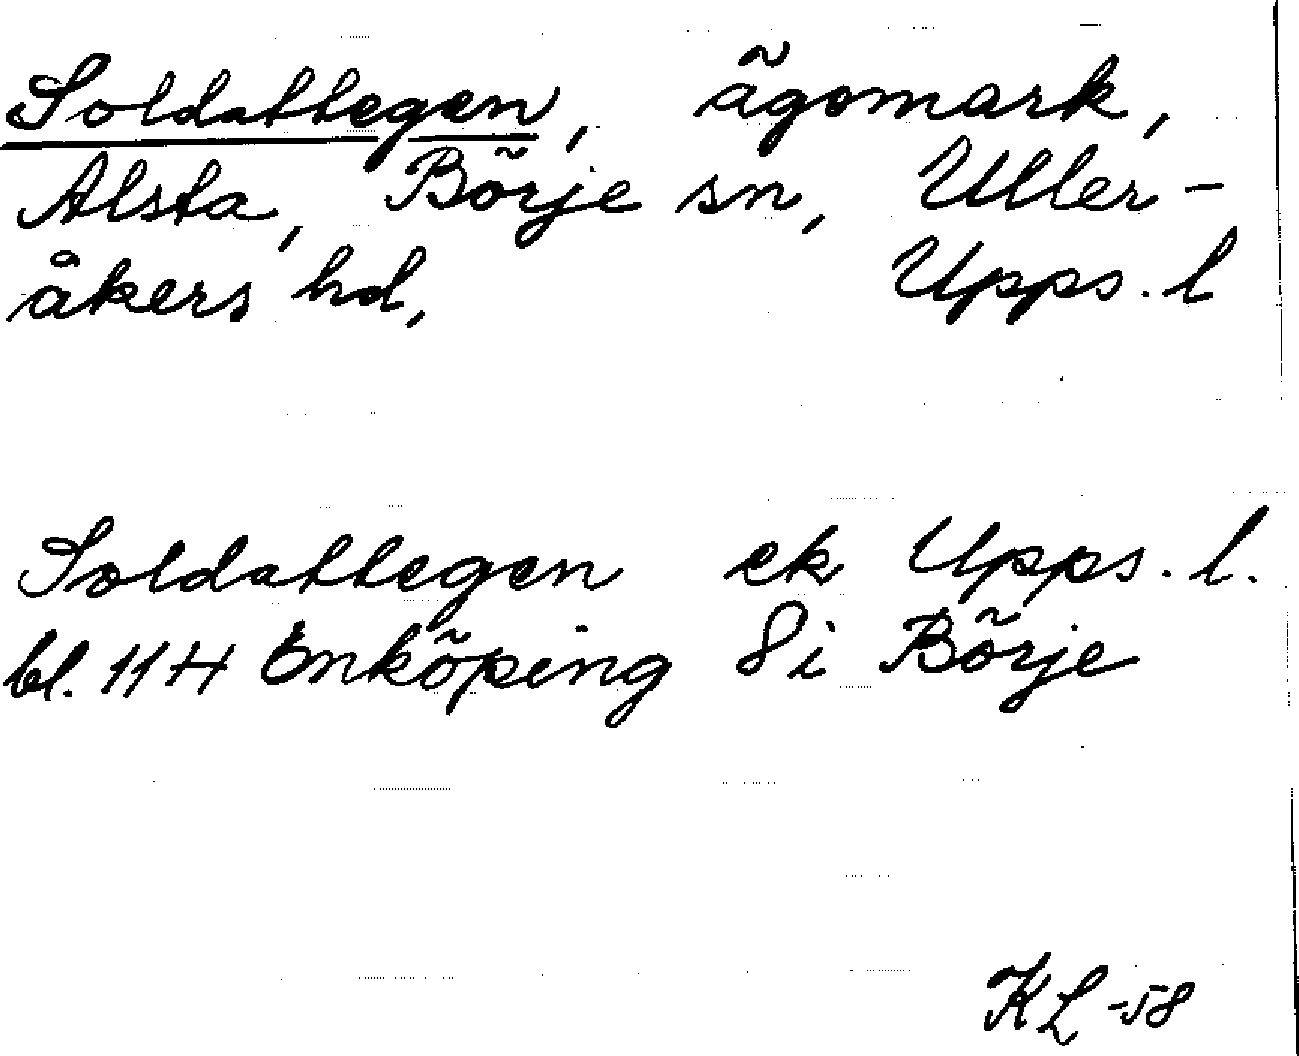 Soldattegen, ägomark,
Alsta, Börje sn, Uller-
åkers hd, Upps. l
Soldattegen ek Upps. l.
bl. 11 H Enköping 8 i Börje
KL -58